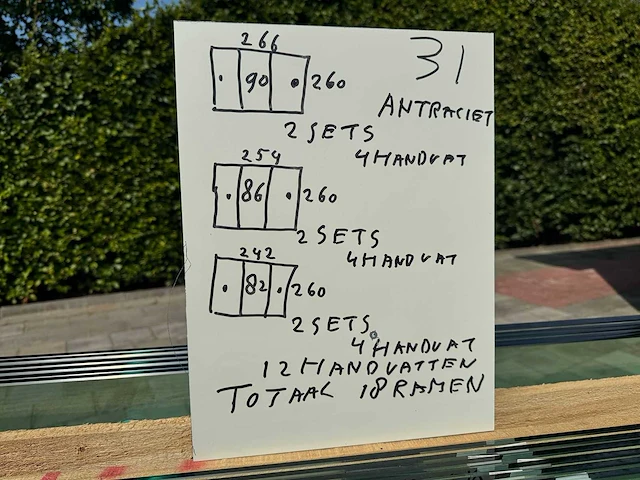 31
ANTRACIET
266
90 260
2 SETS
4 HANDVAT
254
86 260
2 SETS
4 HANDVAT
242
82 260
2 SETS
4 HANDVAT
12 HANDVATTEN
TOTAAL 18 RAMEN